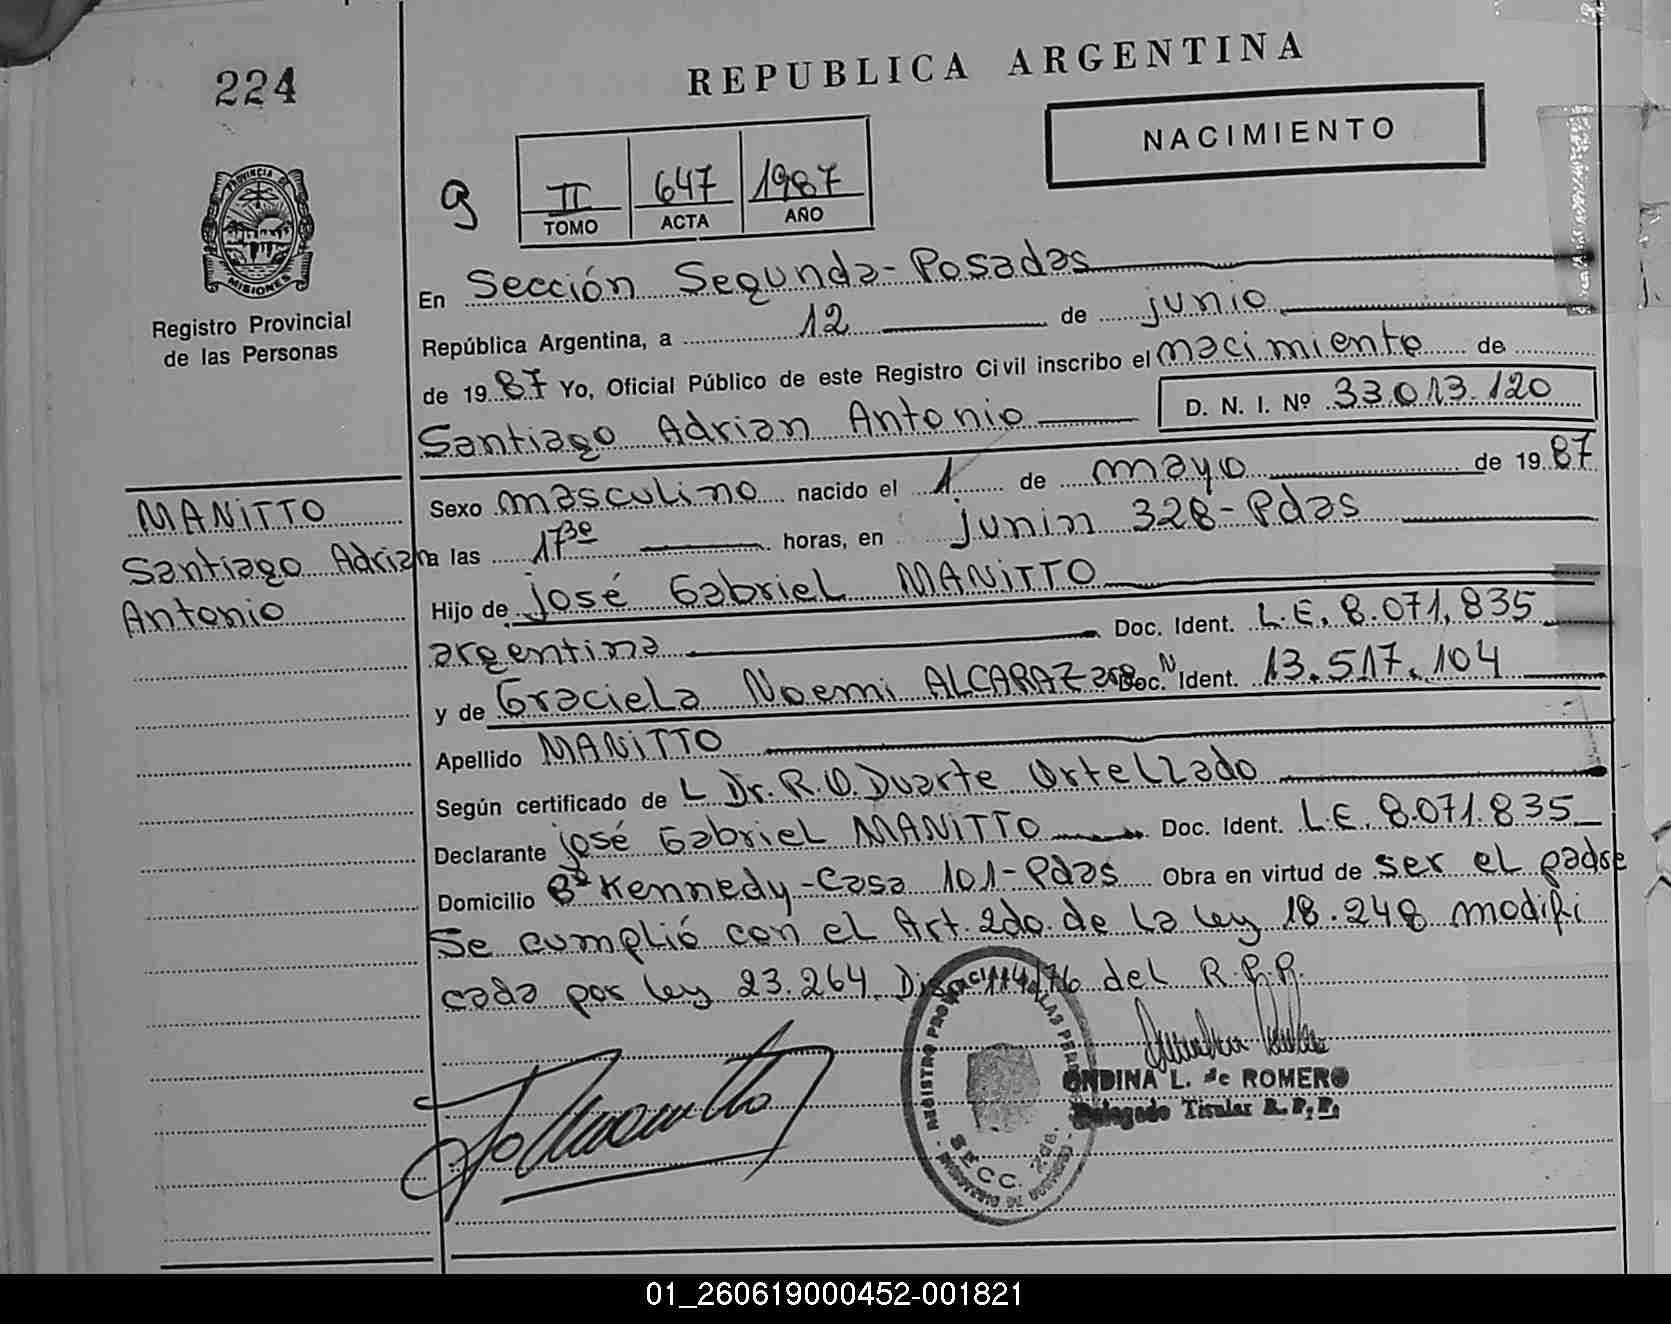 224
REPUBLICA ARGENTINA
NACIMIENTO
PROVINCIA DE
MISIONES
Registro Provincial
de las Personas
9
II 647 1987
TOMO ACTA AÑO
En Sección Segunda - Posadas
República Argentina, a 12 de junio
de 1987 Yo, Oficial Público de este Registro Civil inscribo el nacimiento de
Santiago Adrian Antonio D. N. I. Nº 33.013.120
MANITTO
Santiago Adrian
Antonio
Sexo masculino nacido el 1 de mayo de 1987
a las 17 30 horas, en junin 328 - Pdas
Hijo de josé Gabriel MANITTO
argentina Doc. Ident. L.E. 8.071.835
y de Graciela Noemi ALCARAZ Doc. Ident. 13.517.104
Apellido MANITTO
Según certificado de L Dr. R.O. Duarte Ortellado
Declarante josé Gabriel MANITTO Doc. Ident. L.E. 8.071.835
Domicilio Bº Kennedy - Casa 101 - Pdas Obra en virtud de ser el padre
Se cumplió con el Art. 2do. de la ley 18.248 modifi
cada por ley 23.264. 114/76 del R.P.P.
REGISTRO LAS
SECC. 2da.
ONDINA L. de ROMERO
Delegado Titular R. P. P.
01_260619000452-001821